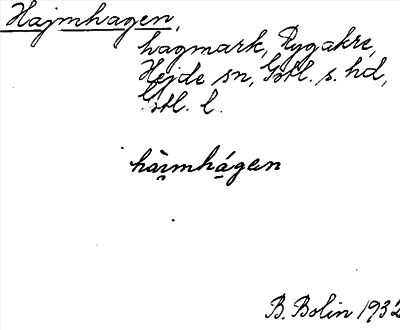 Hajmhagen,
hagmark, Rygakre,
Hejde sn, Gotl. s. hd,
Gotl. l.
hàimhágen
B. Bolin 1932